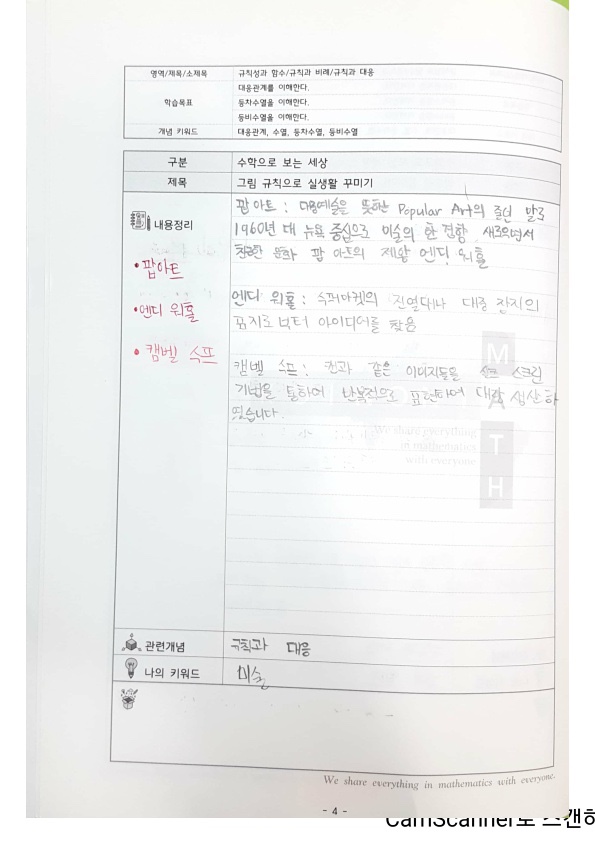 영역/제목/소제목 규칙성과 함수/규칙과 비례/규칙과 대응
학습목표 대응관계를 이해한다.
등차수열을 이해한다.
등비수열을 이해한다.
개념 키워드 대응관계, 수열, 등차수열, 등비수열
구분 수학으로 보는 세상
제목 그림 규칙으로 실생활 꾸미기
내용정리
• 팝아트
• 앤디 워홀
• 캠벨 수프
팝 아트 : 대중예술을 뜻하는 Popular Art의 줄인 말로
1960년 대 뉴욕 중심으로 미술의 한 경향. 새로우면서
친근한 문화 팝 아트의 제왕 앤디 워홀
앤디 워홀 : 슈퍼마켓의 진열대나 대중 잡지의
표지로부터 아이디어를 찾음
캠벨 수프 : 캔과 같은 이미지들을 실크 스크린
기법을 통하여 반복적으로 표현하여 대량 생산하
였습니다.
We share everything
in mathematics
with everyone
M
A
T
H
관련개념 규칙과 대응
나의 키워드 미술
We share everything in mathematics with everyone.
- 4 -
CamScanner로 스캔하